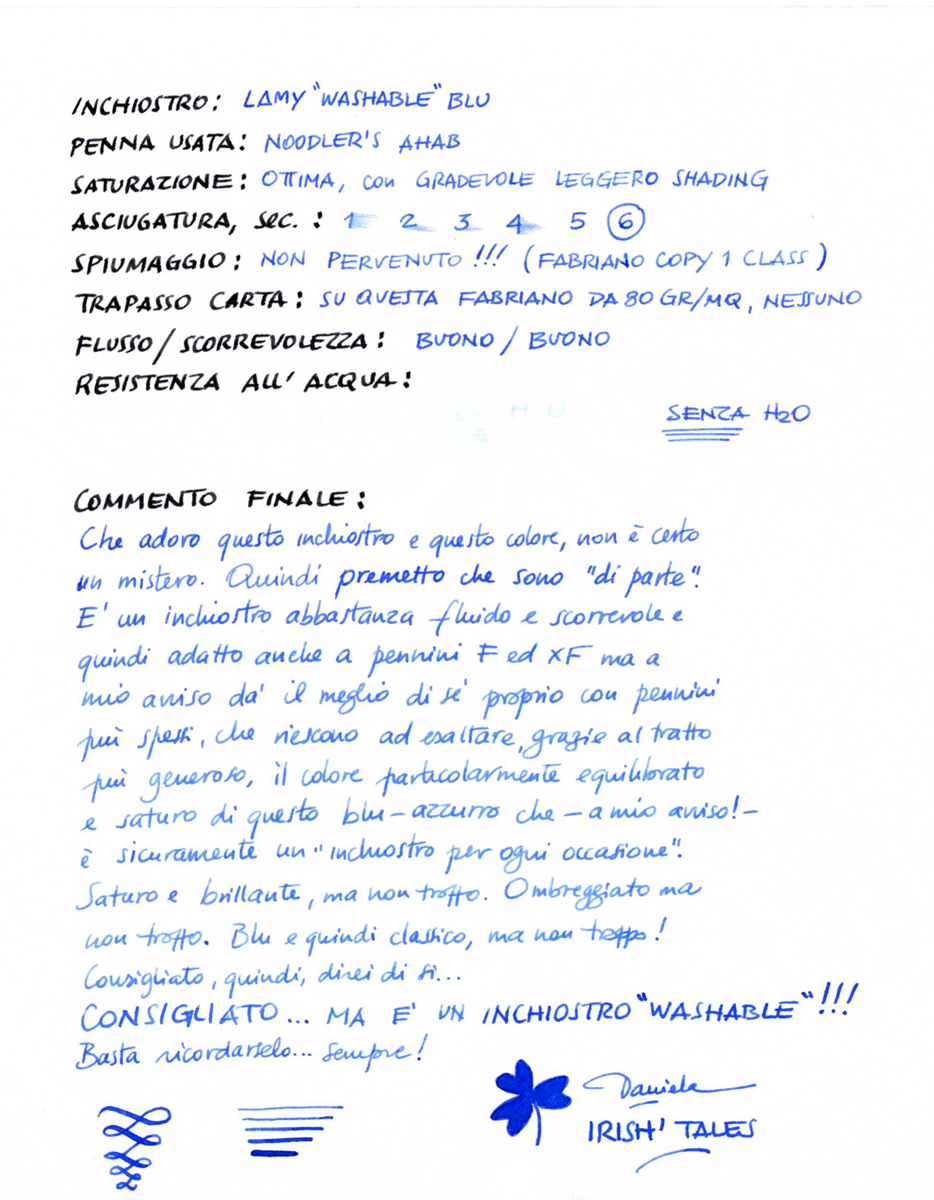 INCHIOSTRO: LAMY "WASHABLE" BLU
PENNA USATA: NOODLER'S AHAB
SATURAZIONE: OTTIMA, con GRADEVOLE LEGGERO SHADING
ASCIUGATURA, sec.: 1 2 3 4 5 6
SPIUMAGGIO: NON PERVENUTO!!! (FABRIANO COPY 1 CLASS)
TRAPASSO CARTA: SU QUESTA FABRIANO DA 80 GR/MQ, NESSUNO
FLUSSO/SCORREVOLEZZA: BUONO/BUONO
RESISTENZA ALL'ACQUA:
CON H2O SENZA H2O
COMMENTO FINALE:
Che adoro questo inchiostro e questo colore, non è certo
un mistero. Quindi premetto che sono "di parte".
E' un inchiostro abbastanza fluido e scorrevole e
quindi adatto anche a pennini F ed XF ma a
mio avviso da' il meglio di se' proprio con pennini
più spessi, che riescono ad esaltare, grazie al tratto
più generoso, il colore particolarmente equilibrato
e saturo di questo blu-azzurro che - a mio avviso! -
è sicuramente un "inchiostro per ogni occasione".
Saturo e brillante, ma non troppo. Ombreggiato ma
non troppo. Blu e quindi classico, ma non troppo!
Consigliato, quindi, direi di sì...
CONSIGLIATO... MA E' UN INCHIOSTRO "WASHABLE"!!!
Basta ricordarselo... sempre!
Daniela
IRISH' TALES